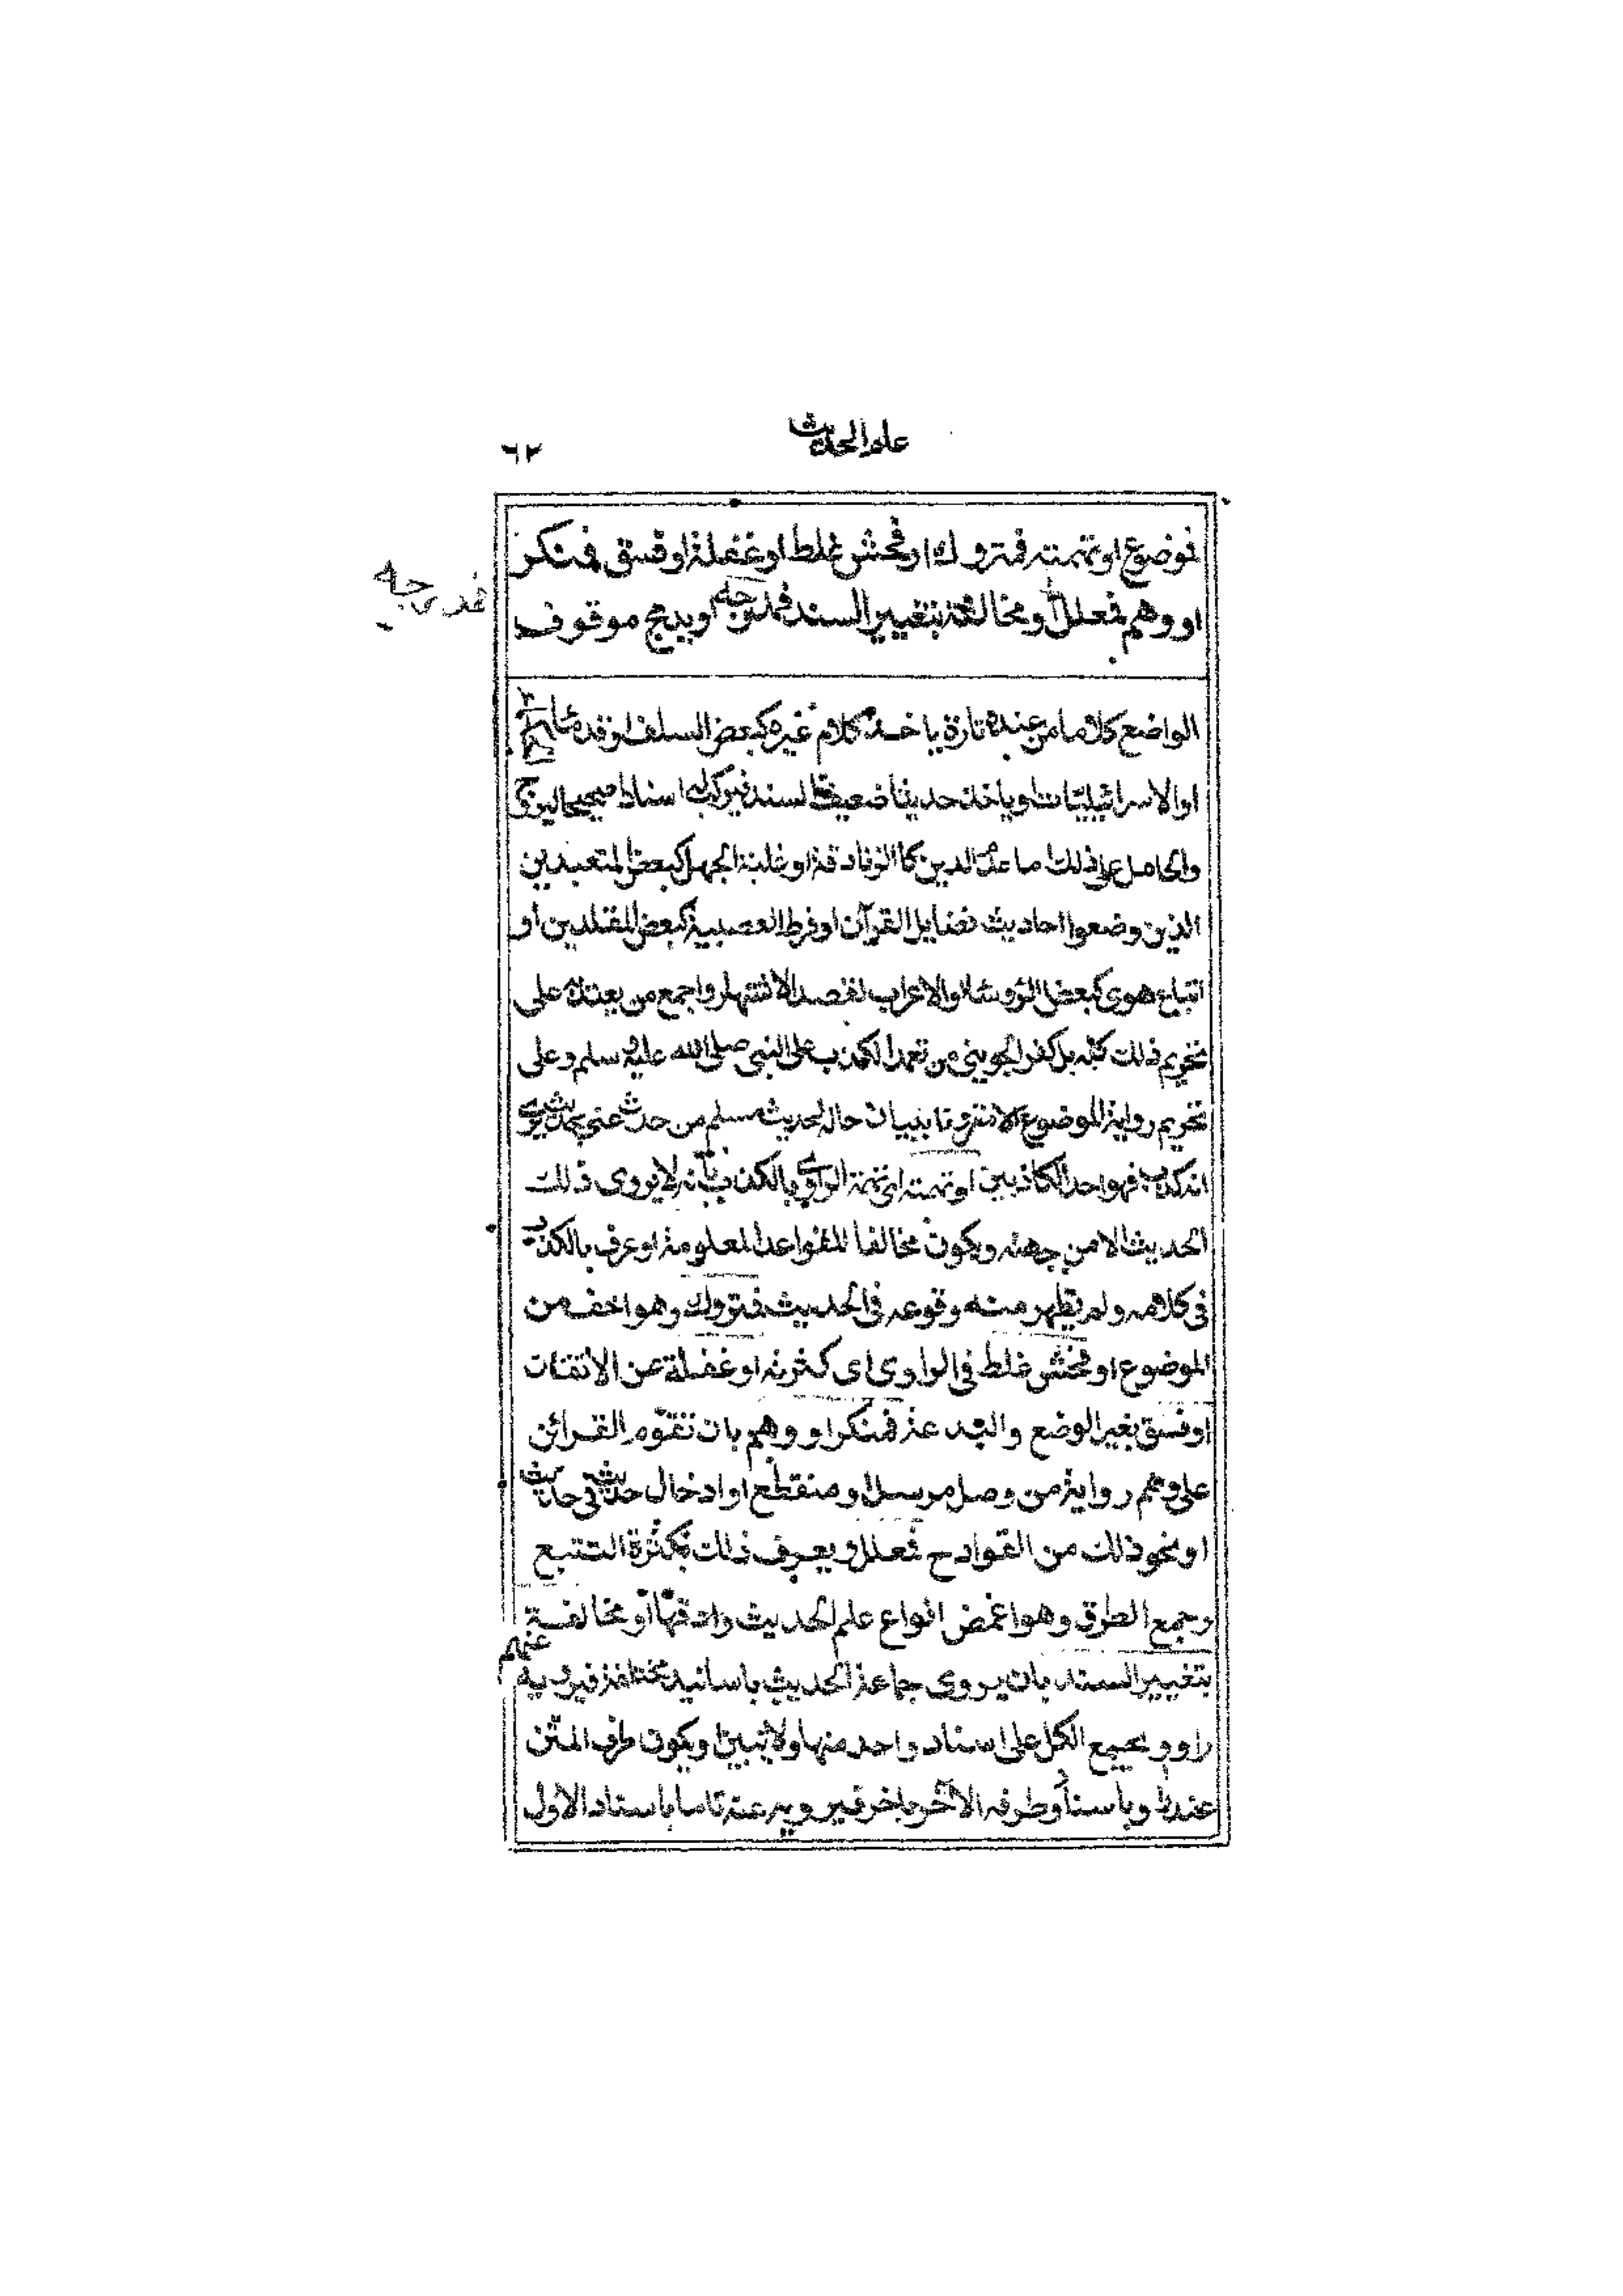 علم الحديث
٦٢
فوضوع او تهمته فمتروك او فحش غلط او غفلة او فسق فمنكر
او وهم فمعلل او مخالفة بتغيير السند فمدرجه او بدمج موقوف
فمدرجه
الواضع كلاما من عنده تارة ياخذ كلام غيره كبعض السلف او قدماء
او الاسرائيليات او ياخذ حديثا ضعيف السند فيركب له اسنادا صحيحا ليروج
والحامل على ذلك ما عدم الدين كالزنادقة او غلبة الجهل كبعض المتعبدين
الذين وضعوا احاديث فضايل القرآن او فرط العصبية كبعض المقلدين او
اتباع هوى كبعض الرؤسا او الاغراب لقصد الاشتهار واجمع من يعتد به على
تحريم ذلك كله بل كفر الجويني من تعمد الكذب على النبي صلى الله عليه وسلم وعلى
تحريم رواية الموضوع الا مقرونا ببيان حاله لحديث مسلم من حدث عني بحديث يرى
انه كذب فهو احد الكاذبين او تهمته اي تهمة الراوي بالكذب بأنه لا يروى ذلك
الحديث الا من جهته ويكون مخالفا للقواعد المعلومة او عرف بالكذب
في كلامه ولم يظهر منه وقوعه في الحديث فمتروك وهو اخف من
الموضوع او فحش غلط في الراوي اى كثرته او غفلة عن الاتقان
او فسق بغير الوضع والبدعة فمنكر او وهم بان تقوم القرائن
على وهم رواية من وصل مرسل او منقطع او ادخال حديث في حديث
او نحو ذلك من القوادح فمعلل ويعرف ذلك بكثرة التتبع
وجمع الطرق وهو اغمض انواع علم الحديث وادقها او مخالفة
بتغيير السند بان يروى جماعة الحديث باسانيد مختلفة فيرويه عنهم
راو ويجمع الكل على اسناد واحد منها ولا يبين او يكون طرف المتن
عند راو باسناد وطرفه الآخر باخر فيرويه عنه تاما باسناد الاول